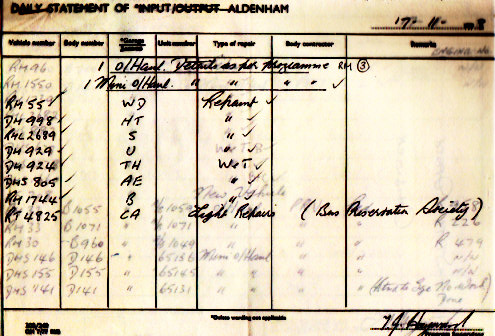 DAILY STATEMENT OF *INPUT/OUTPUT ALDENHAM
17-11-
Vehicle number Body number *Garage Unit number Type of repair Body contractor Remarks
RM96 1 O/Haul. Details as per Programme RM ③
RM1550 1 Mini O/Haul. " " " "
RM 557 WD Repaint
DM 998 HT "
RML 2689 S "
DM 929 U "
DM 924 TH W+T
DMS 805 AE "
RM 1744 B "
RT 4825 CA Light Repairs (Bus Preservation Society)
RM 33 B1071 " 1071 R 226
RM 30 B960 " 1049 R 479
DMS 146 D146 " 65136 Mini O/Haul
DMS 155 D155 " 65145 " N/W
DMS 141 D141 " 65131 " No Work
Done
*Delete wording not applicable